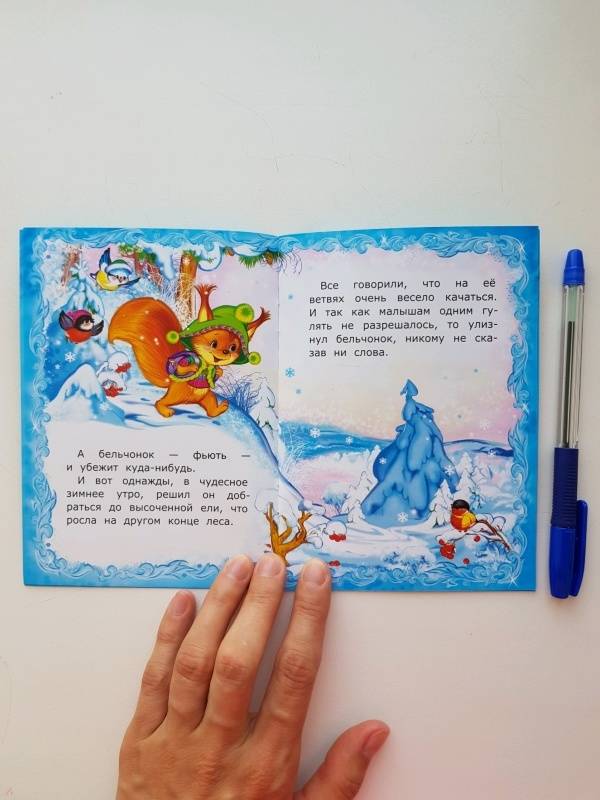 А бельчонок — фьють —
и убежит куда-нибудь.
И вот однажды, в чудесное
зимнее утро, решил он доб-
раться до высоченной ели, что
росла на другом конце леса.
Все говорили, что на её
ветвях очень весело качаться.
И так как малышам одним гу-
лять не разрешалось, то улиз-
нул бельчонок, никому не ска-
зав ни слова.